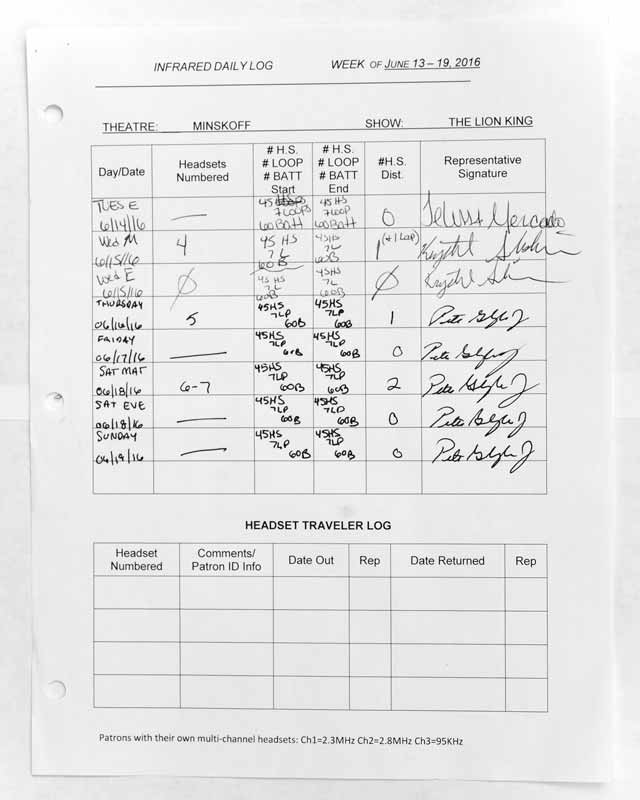 INFRARED DAILY LOG WEEK OF JUNE 13 – 19, 2016
THEATRE: MINSKOFF SHOW: THE LION KING
Day/Date Headsets Numbered # H.S. # LOOP # BATT Start # H.S. # LOOP # BATT End #H.S. Dist. Representative Signature
TUES E 6/14/16 — 45 HS 7 LOOP 60 BATT 45 HS 7 LOOP 60 BATT 0 Mercado
Wed M 6/15/16 4 45 HS 7 L 60 B 45 HS 7L 60 B 1 (+1 Loop) Krystal
Wed E 6/15/16 Ø 45 HS 7L 60B 45HS 7L 60B Ø Krystal
THURSDAY 06/16/16 5 45HS 7LP 60B 45HS 7LP 60B 1 Pete
FRIDAY 06/17/16 — 45HS 7LP 60B 45HS 7LP 60B 0 Pete
SAT MAT 06/18/16 6-7 45HS 7LP 60B 45HS 7LP 60B 2 Pete
SAT EVE 06/18/16 — 45HS 7LP 60B 45HS 7LP 60B 0 Pete
SUNDAY 06/19/16 — 45HS 7LP 60B 45HS 7LP 60B 0 Pete
HEADSET TRAVELER LOG
Headset Numbered Comments/ Patron ID Info Date Out Rep Date Returned Rep
Patrons with their own multi-channel headsets: Ch1=2.3MHz Ch2=2.8MHz Ch3=95KHz